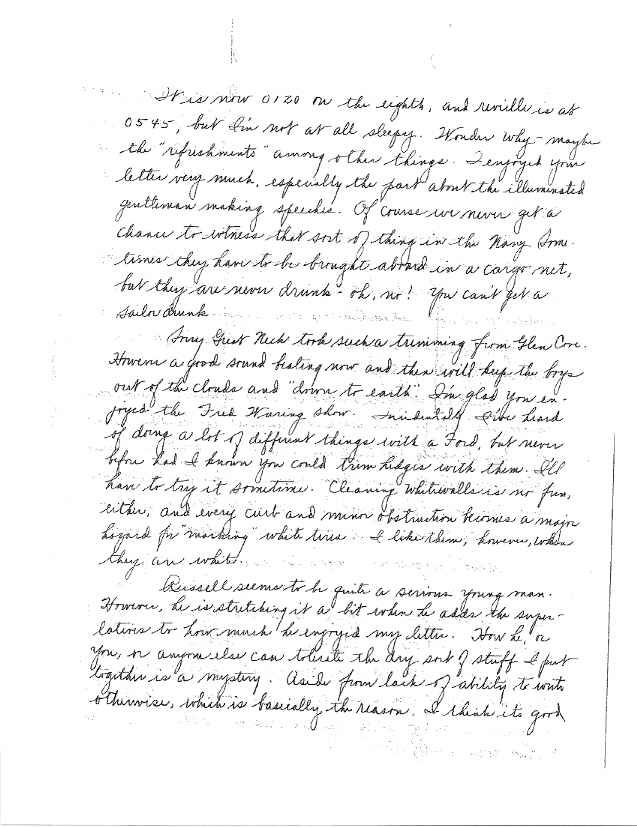 It is now 0120 on the eighth, and reveille is at
0545, but I'm not at all sleepy. Wonder why - maybe
the "refreshments" among other things. I enjoyed your
letter very much, especially the part about the illuminated
gentleman making speeches. Of course we never get a
chance to witness that sort of thing in the Navy. Some-
times they have to be brought aboard in a cargo net,
but they are never drunk - oh, no! You can't get a
sailor drunk.
Sorry Great Neck took such a trimming from Glen Cove.
However a good sound beating now and then will keep the boys
out of the clouds and "down to earth". I'm glad you en-
joyed the Fred Waring show. Incidentally I've heard
of doing a lot of different things with a Ford, but never
before had I known you could trim hedges with them. I'll
have to try it sometime. Cleaning whitewalls is no fun,
either, and every curb and minor obstruction becomes a major
hazard for "marking" white tires. I like them, however, when
they are white.
Russell seems to be quite a serious young man.
However, he is stretching it a bit when he adds the super-
latives to how much he enjoyed my letter. How he, or
you, or anyone else can tolerate the dry sort of stuff I put
together is a mystery. Aside from lack of ability to write
otherwise, which is basically the reason. I think its good